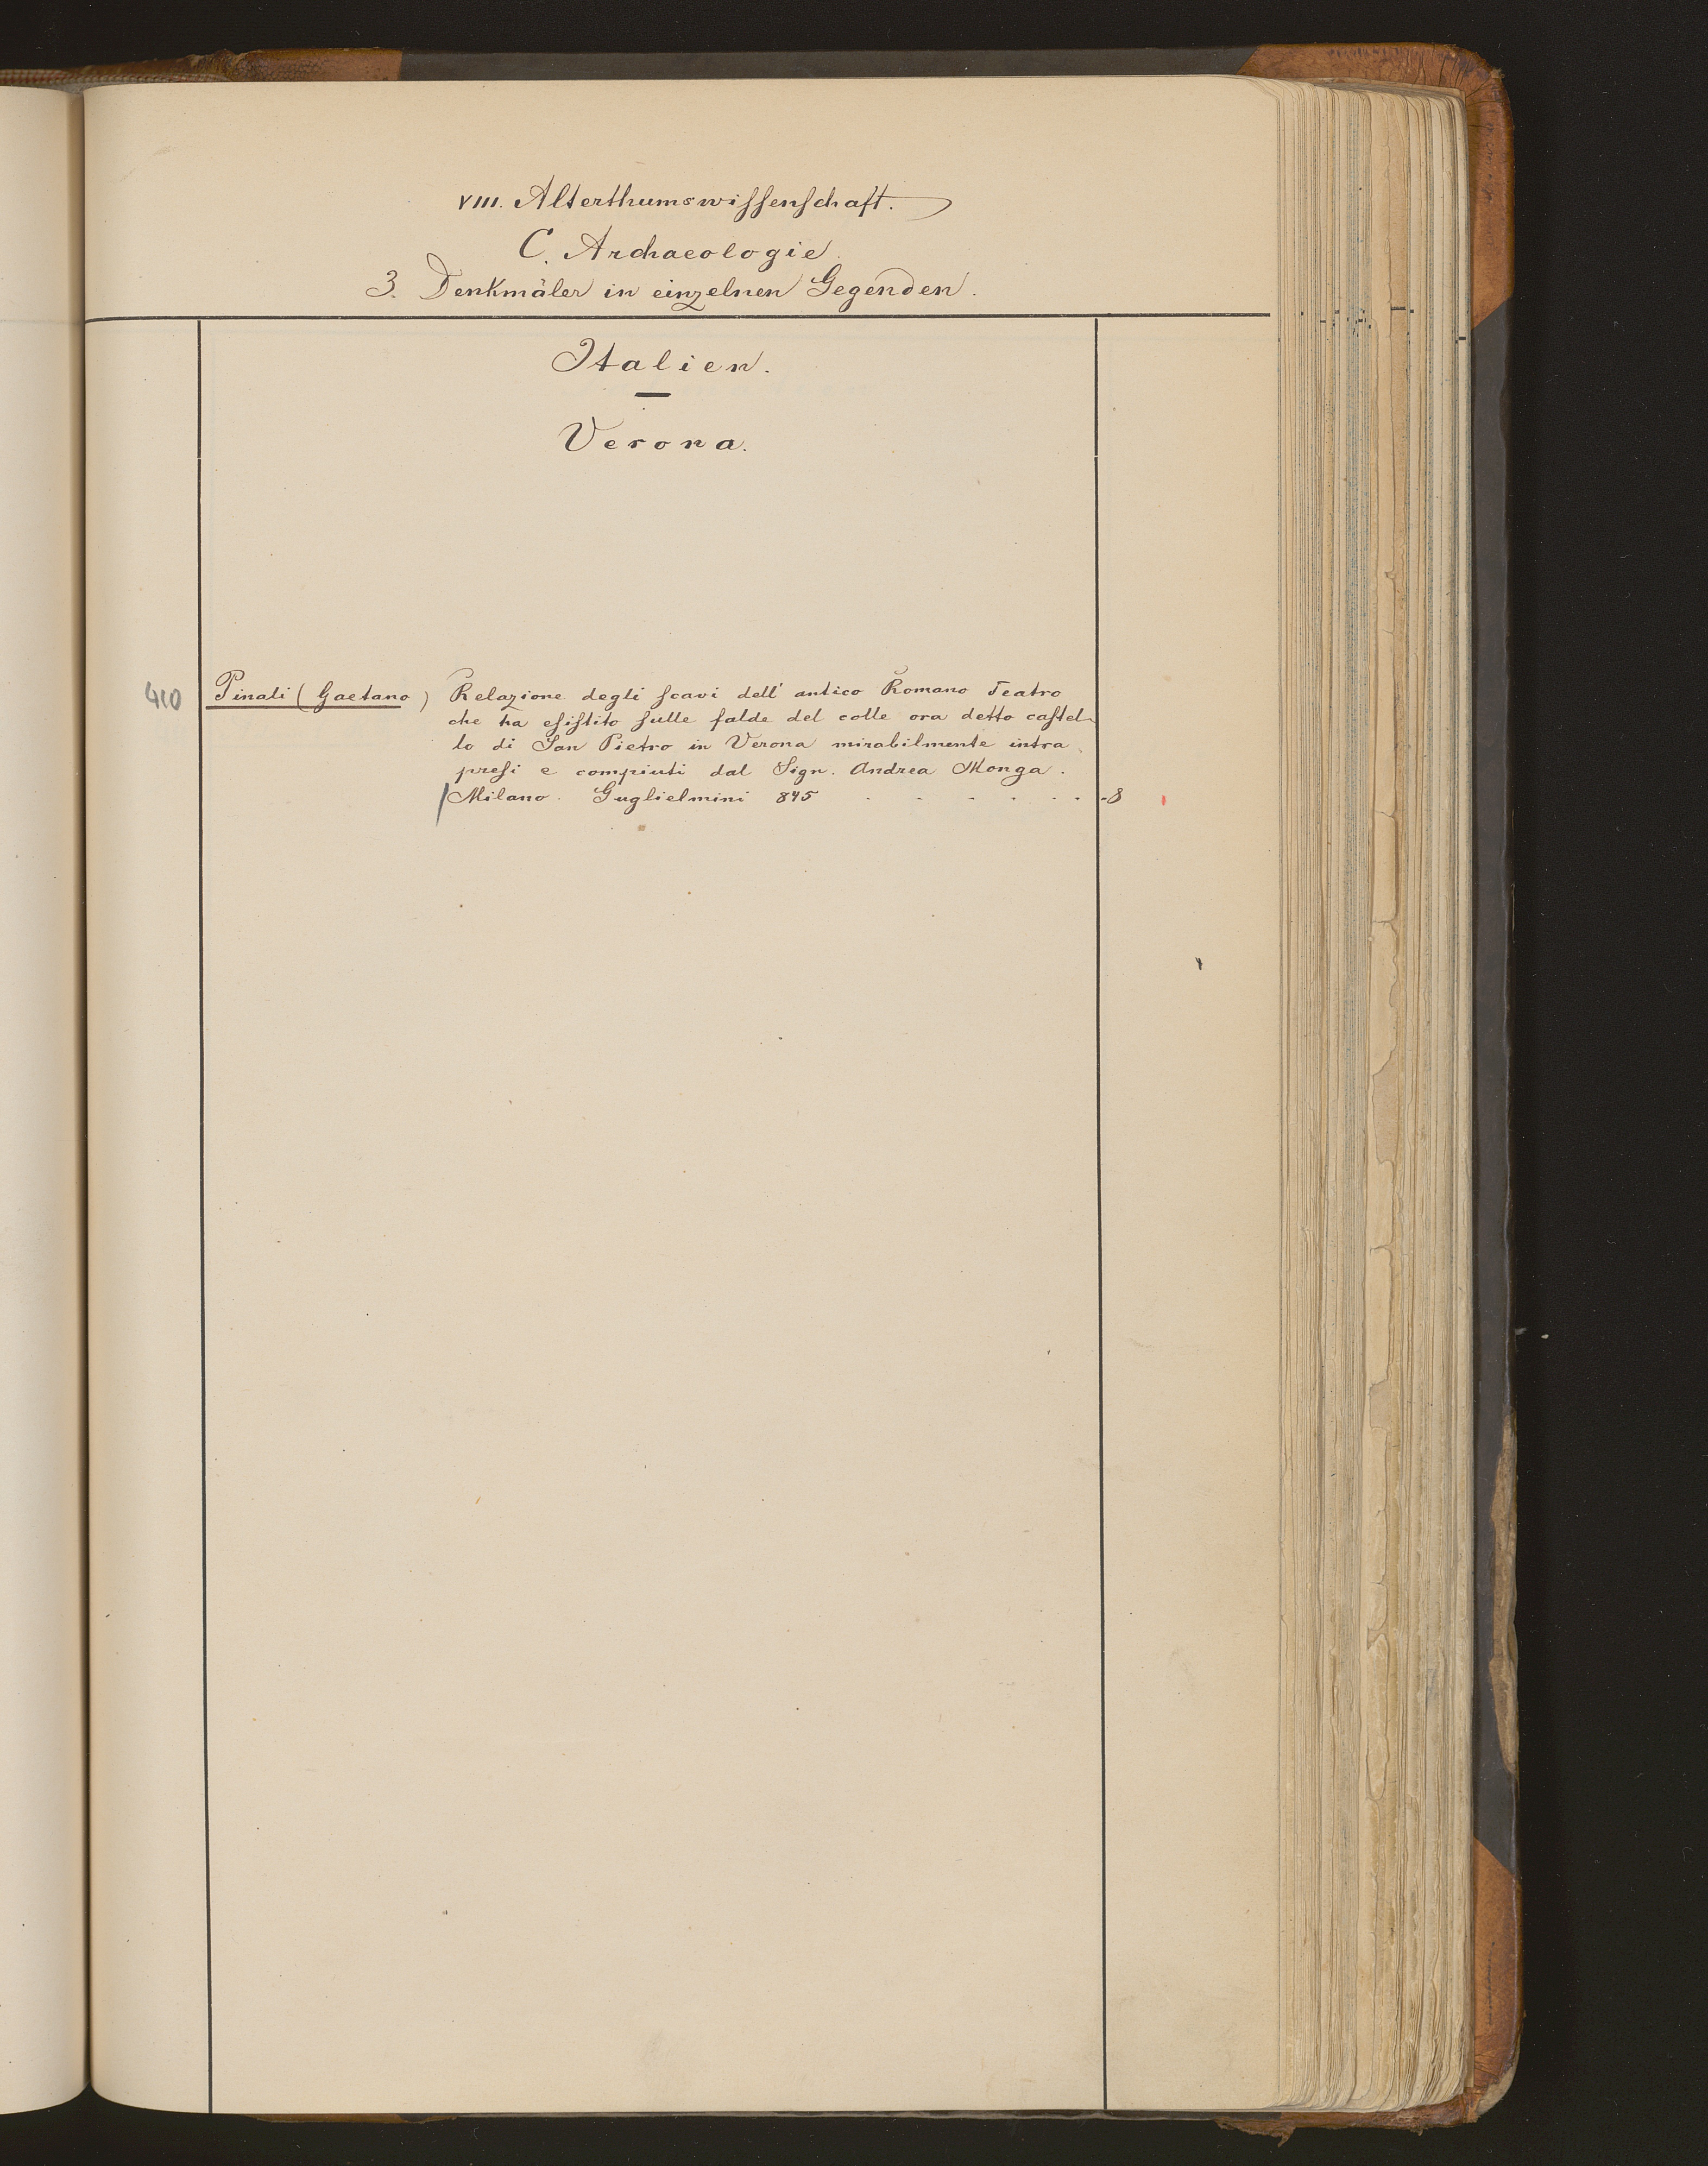 VIII. Alterthumswiſſenſchaft.
C. Archaeologie.
3. Denkmäler in einzelnen Gegenden.
Italien.
Verona.
410 Pinali (Gaetano) Relazione degli ſcavi dell' antico Romano Teatro
che ha eſiſtito ſulle falde del colle ora detto caſtel-
lo di San Pietro in Verona mirabilmente intra
preſi e compiuti dal Sign. Andrea Monga.
Milano. Guglielmini 845 . . . . . . -8